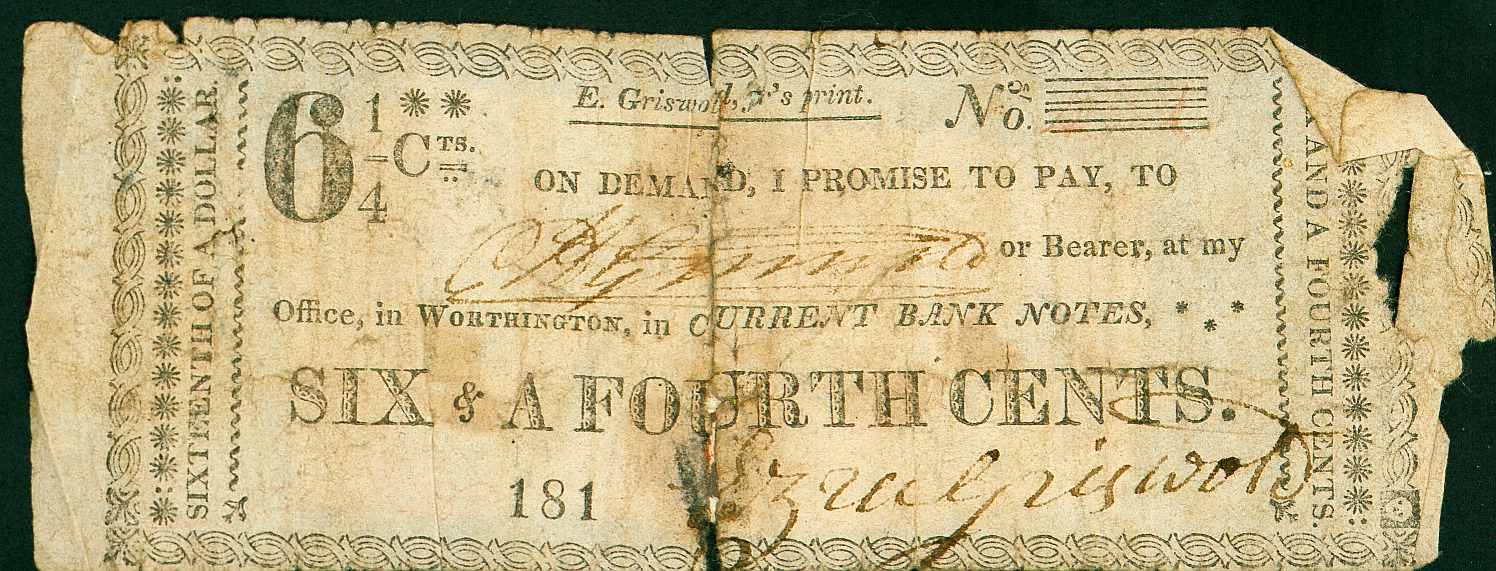 SIXTEENTH OF A DOLLAR.
6 1/4 CTS.
E. Griswold, Jr's print.
No.
ON DEMAND, I PROMISE TO PAY, TO
Griswold or Bearer, at my
Office, in WORTHINGTON, in CURRENT BANK NOTES,
SIX & A FOURTH CENTS.
181
Ezra Griswold
X AND A FOURTH CENTS.